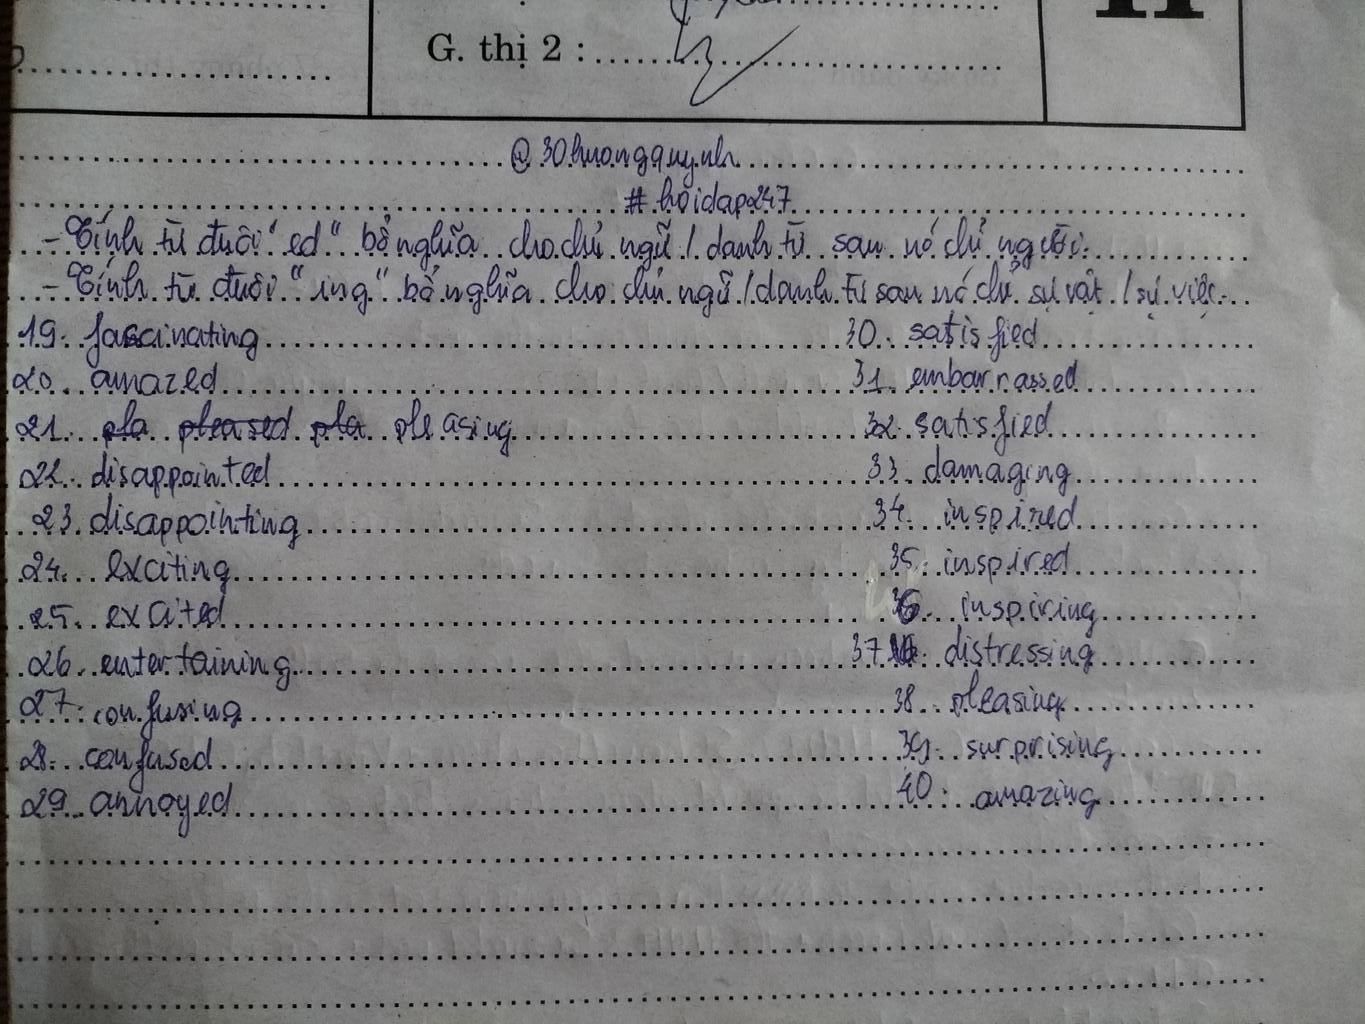 G. thị 2 :
@30huongquynh
#hoidap247
- Tính từ đuôi "ed" bổ nghĩa cho chủ ngữ / danh từ sau nó chỉ người.
- Tính từ đuôi "ing" bổ nghĩa cho chủ ngữ / danh từ sau nó chỉ sự vật / sự việc.
19. fascinating
20. amazed
21. pla pleased pla pleasing
22. disappointed
23. disappointing
24. exciting
25. excited
26. entertaining
27. confusing
28. confused
29. annoyed
30. satisfied
31. embarrassed
32. satisfied
33. damaging
34. inspired
35. inspired
36. inspiring
37. distressing
38. pleasing
39. surprising
40. amazing